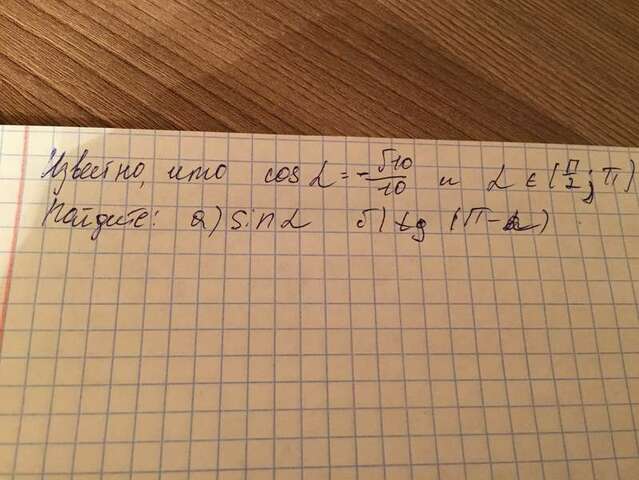 Известно, что cos α = -√10/10 и α ∈ (π/2; π)
Найдите: а) sin α б) tg (π - α)